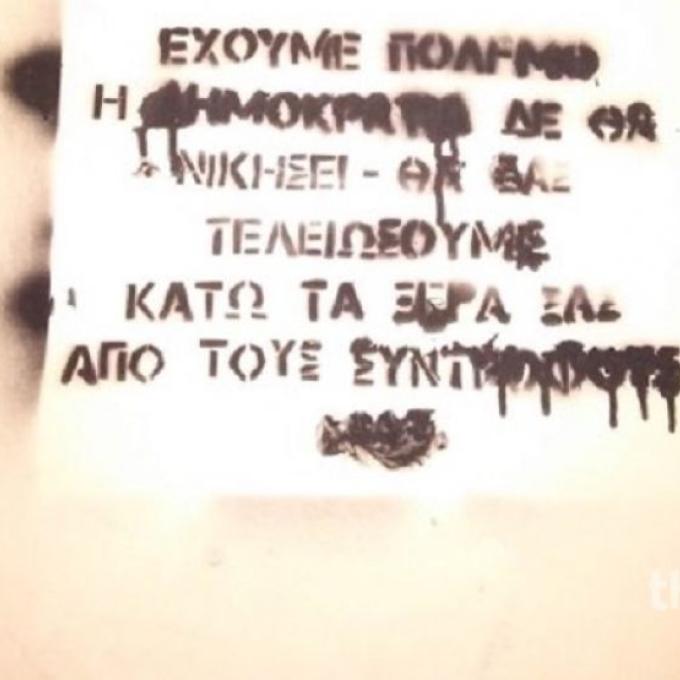 ΕΧΟΥΜΕ ΠΟΛΕΜΟ
Η ΔΗΜΟΚΡΑΤΙΑ ΔΕ ΘΑ
ΝΙΚΗΣΕΙ - ΘΑ ΣΑΣ
ΤΕΛΕΙΩΣΟΥΜΕ
ΚΑΤΩ ΤΑ ΞΕΡΑ ΣΑΣ
ΑΠΟ ΤΟΥΣ ΣΥΝΤΡΟΦΟΥΣ